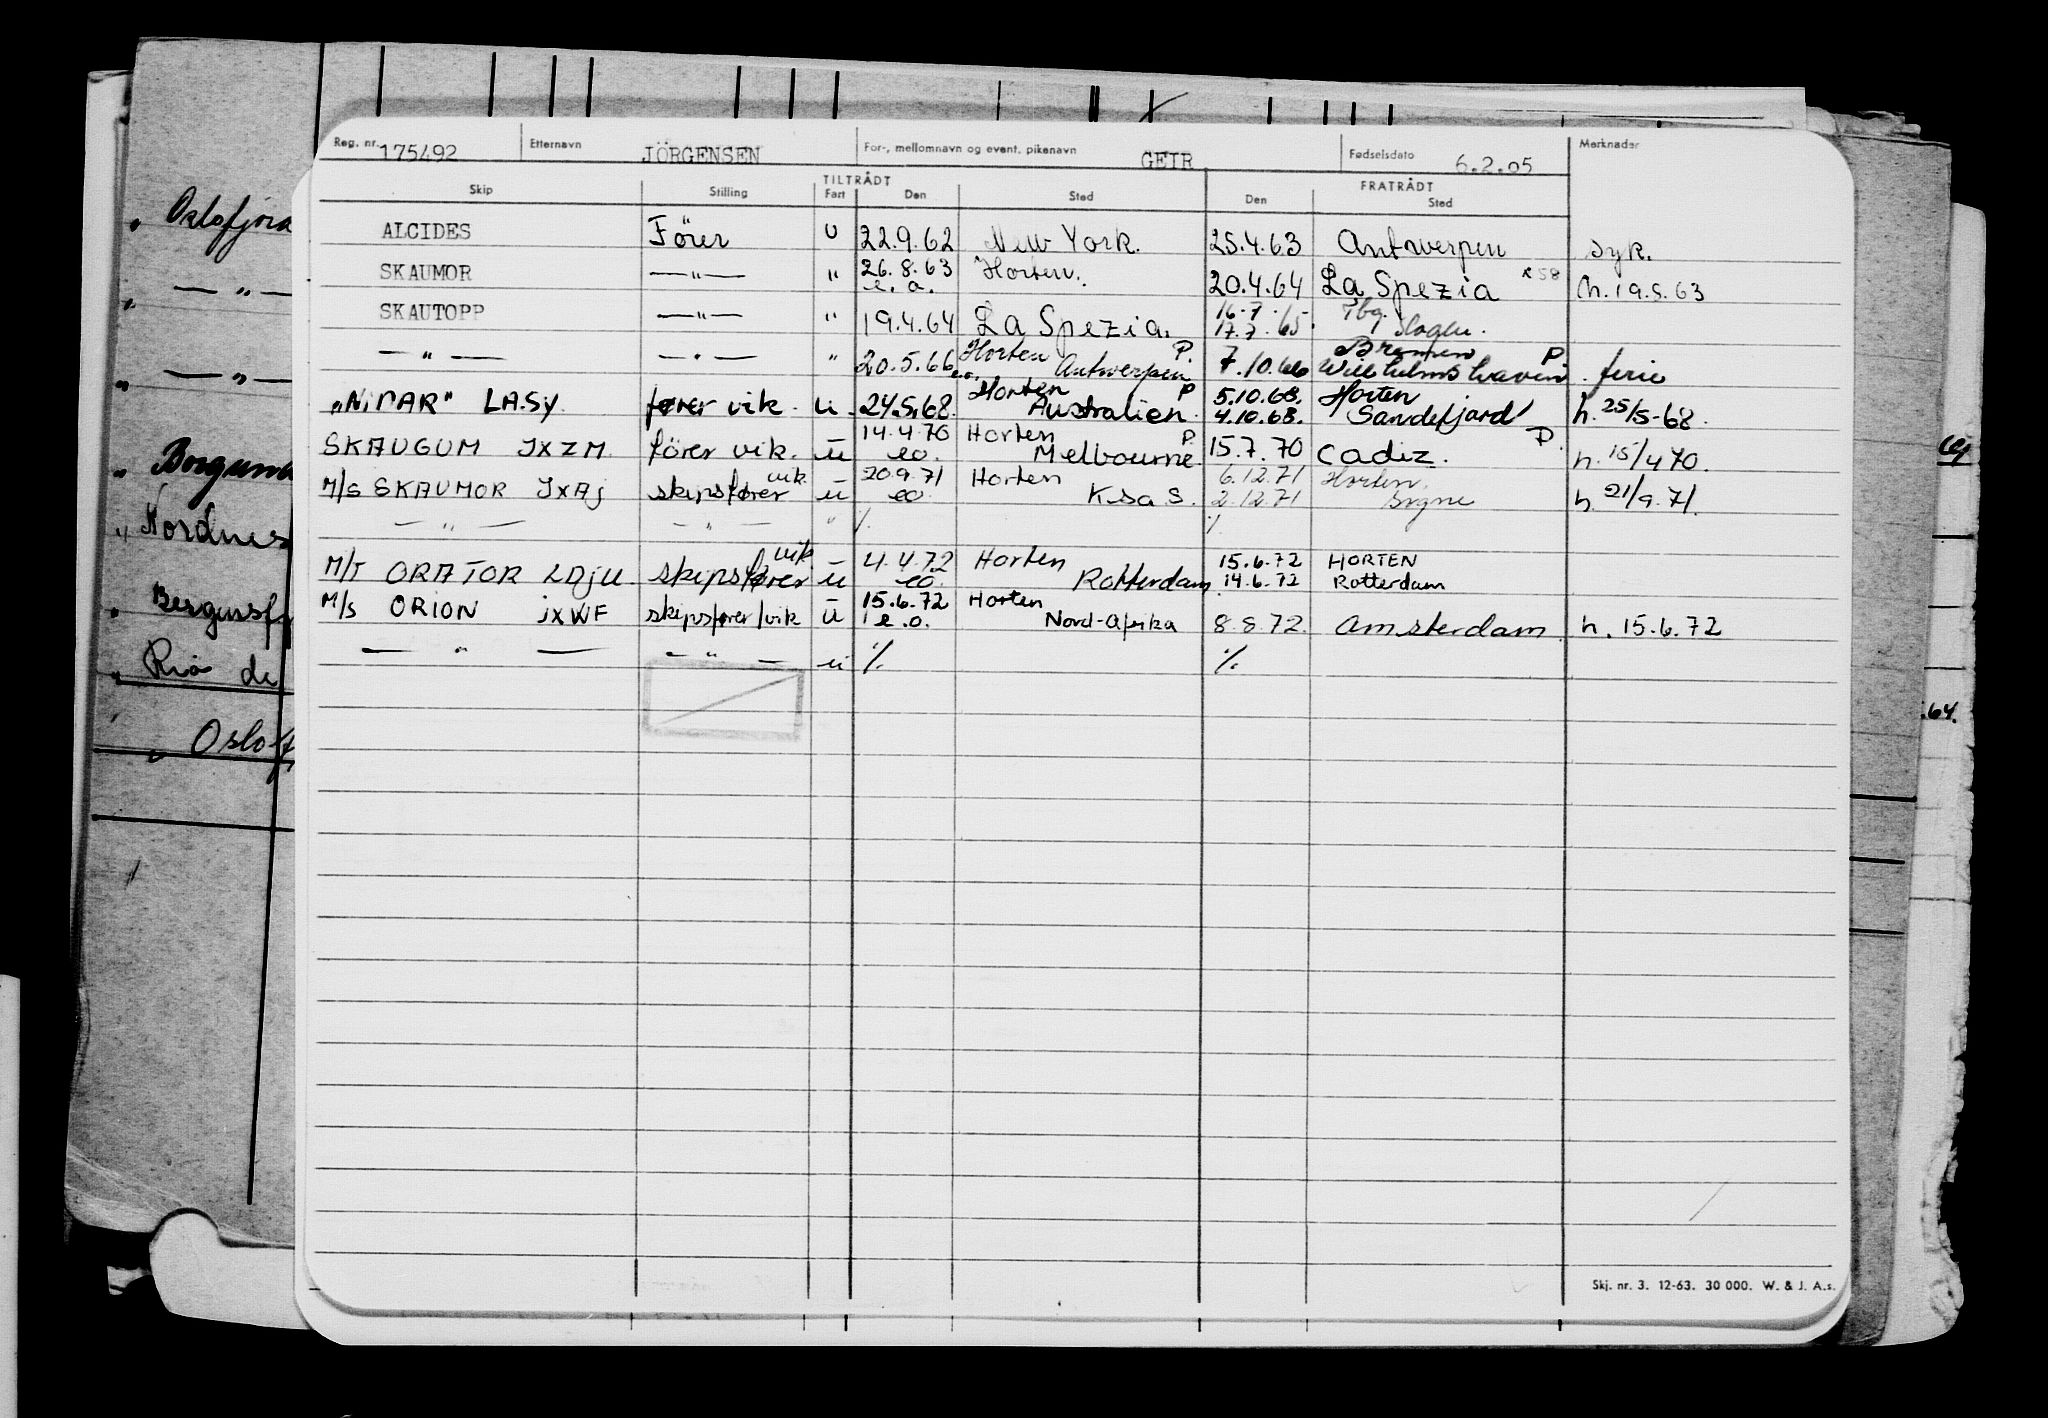 Reg. nr. 175492 Etternavn JÖRGENSEN For-, mellomnavn og event. pikenavn GEIR Fødselsdato 6.2.05 Merknader
TILTRÅDT FRATRÅDT
Skip Stilling Fart Den Sted Den Sted
ALCIDES Förer U 22.9.62 New York. 25.4.63 Antwerpen syk.
SKAUMOR —"— " 26.8.63 e.o. Horten. 20.4.64 La Spezia h. 19.5.63
SKAUTOPP —"— " 19.4.64 La Spezia. 16.7. 17.7.65. Tbg.
—"— —"— " 20.5.66 e.o. Horten P. Antwerpen 7.10.66 Bremen P. Wilhelmshaven ferie
"NIDAR" LASY fører vik. u 24.5.68. Horten P Australien. 5.10.68. 4.10.68. Horten Sandefjord h. 25/5-68.
SKAUGUM JXZM fører vik. u 14.4.70 eo. Horten P. Melbourne 15.7.70 Cadiz. P. h. 15/4 70.
M/S SKAUMOR JXAJ skipsfører vik u 20.9.71 eo. Horten 6.12.71 2.12.71 Horten. h. 21/9.71.
—"— —"— " %. %
M/T ORATOR LAJU skipsfører vik u 4.4.72 eo. Horten Rotterdam 15.6.72 14.6.72 HORTEN Rotterdam
M/S ORION JXWF skipsfører/vik u 15.6.72 e.o. Horten Nord-Afrika 8.8.72. Amsterdam. h. 15.6.72
—"— —"— u % %.
Skj. nr. 3. 12-63. 30 000. W. & J. A.s.
" Oslofjord
" —"—
" —"—
" Borgund
" Nordnes
" Bergensfj
" Rio de
" Oslofj
.64.